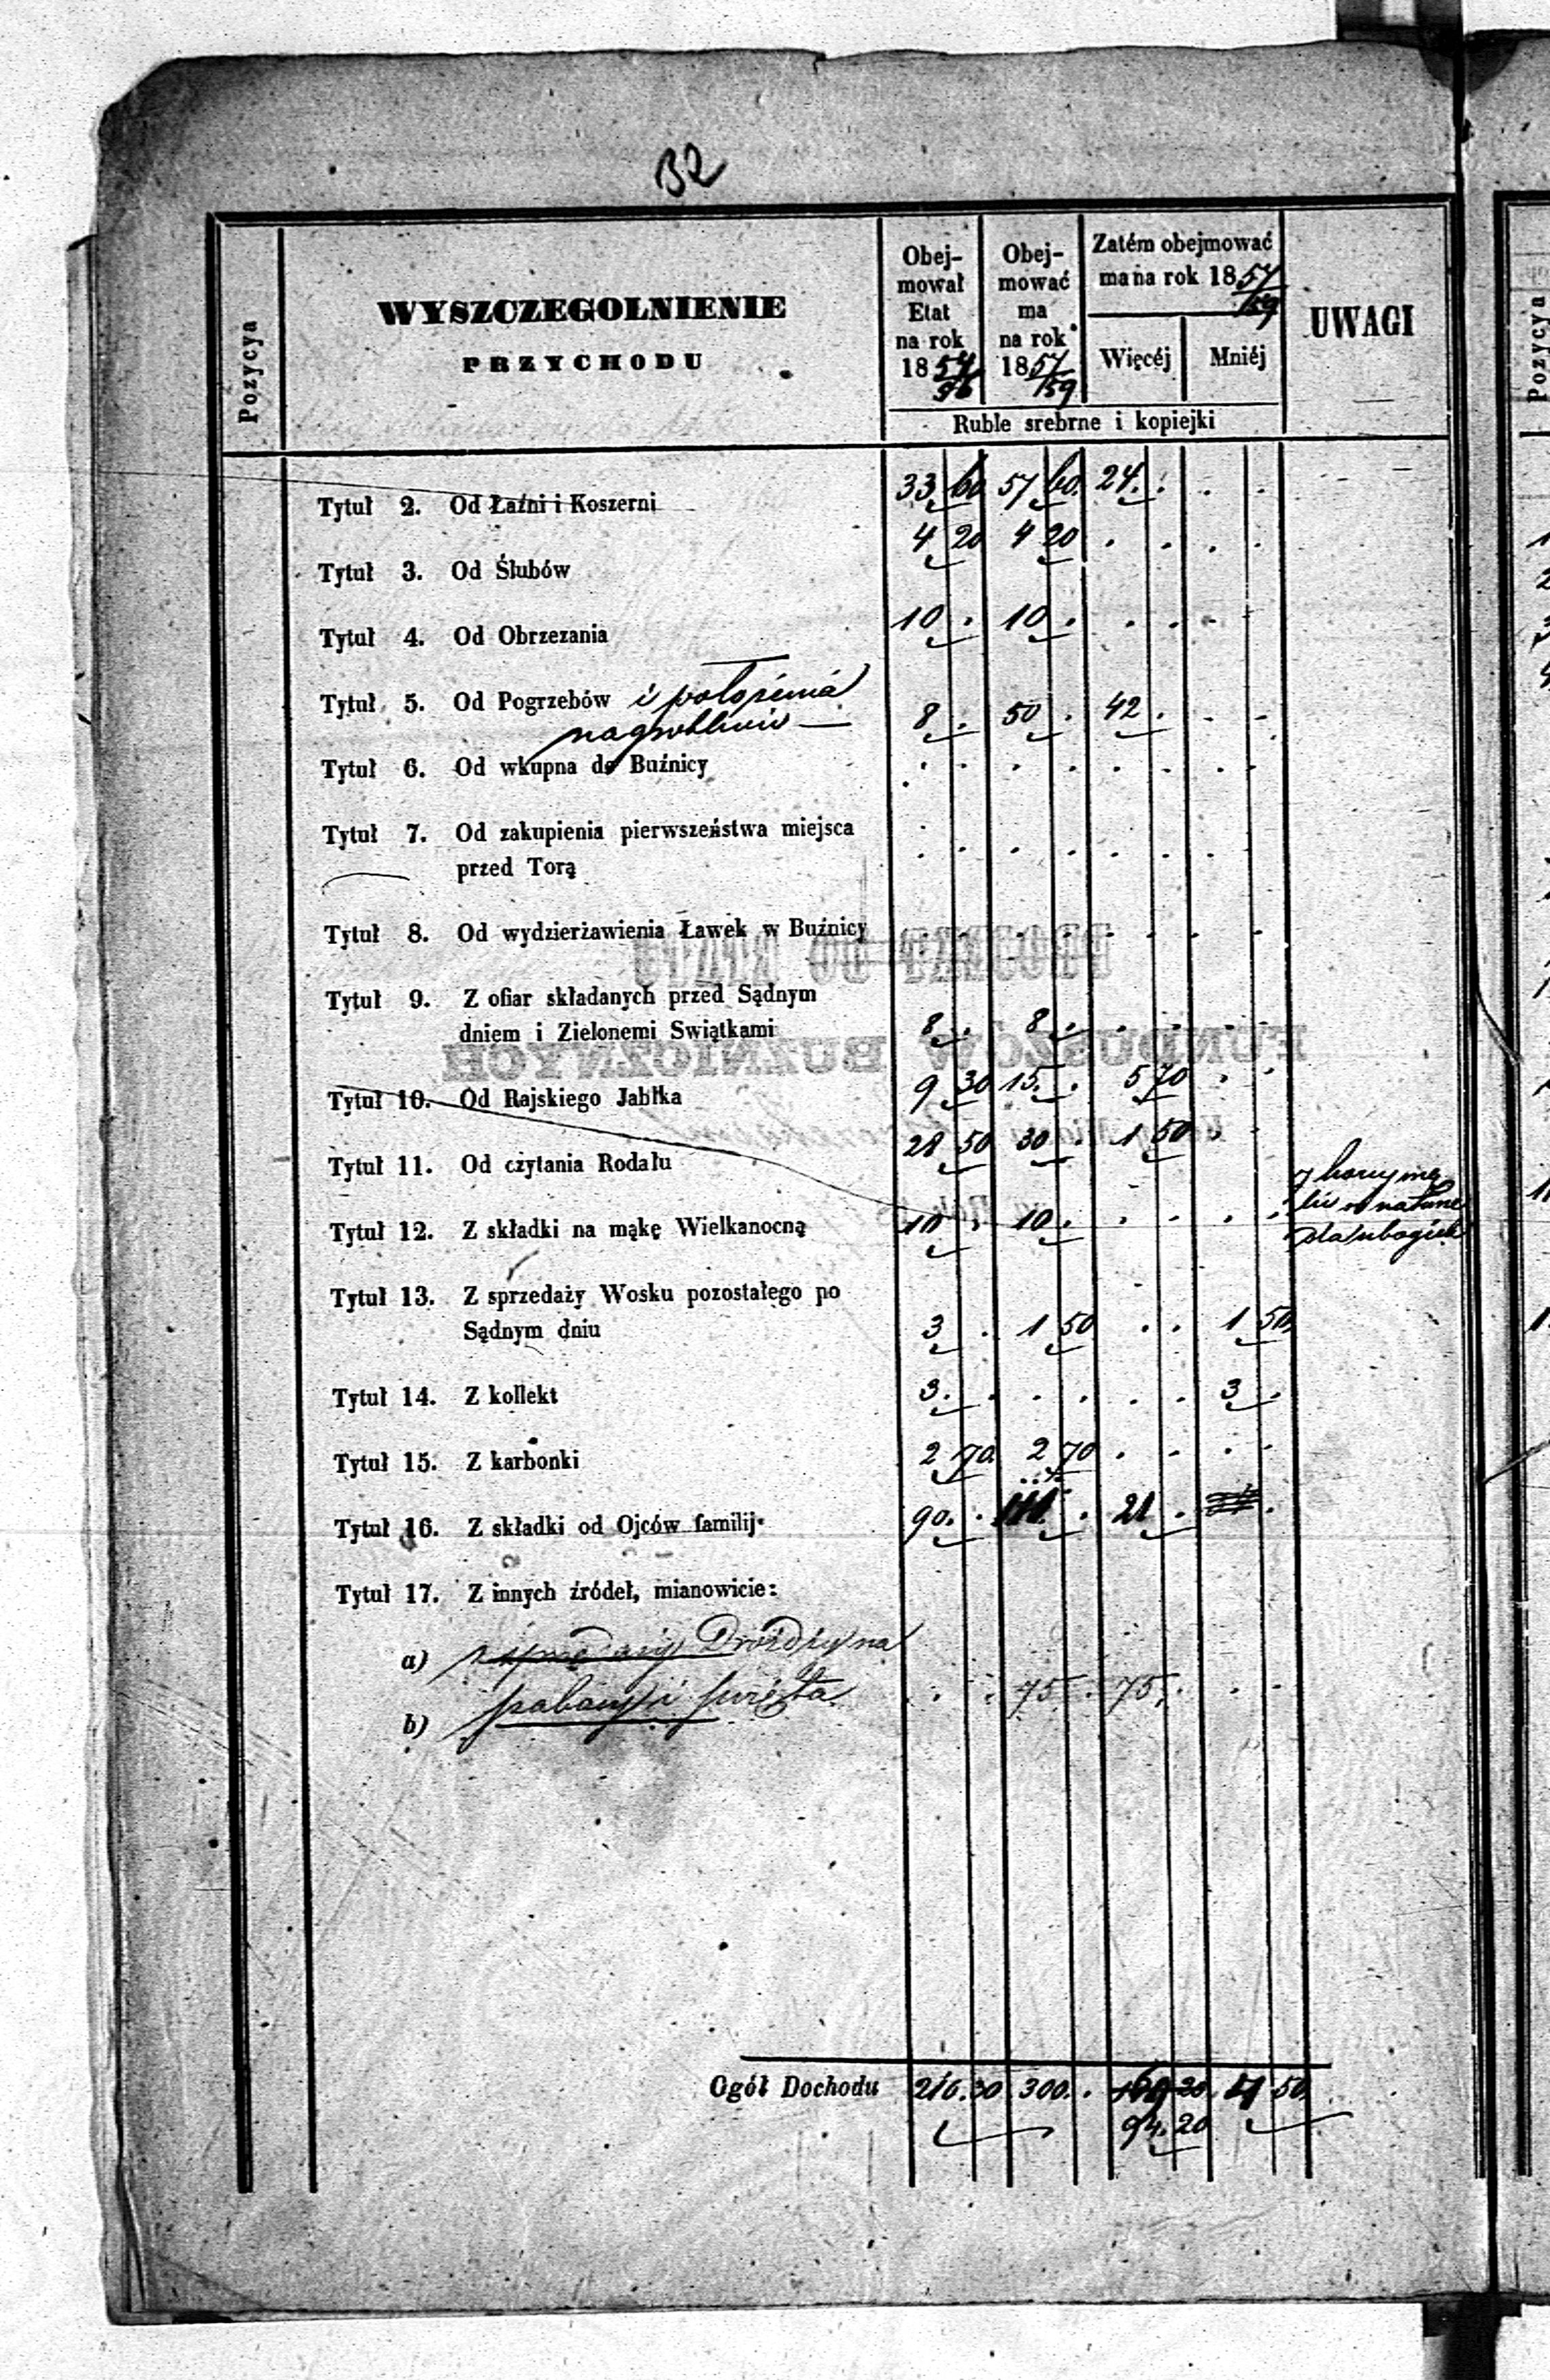 32
Pozycya
WYSZCZEGOLNIENIE
PRZYCHODU
Obej-
mował
Etat
na rok
1854/56
Obej-
mować
ma
na rok
1857/59
Zatém obejmować
ma na rok 1857/59
Więcéj Mniéj
Ruble srebrne i kopiejki
UWAGI
Tytuł 2. Od Łaźni i Koszerni 33 60 57 60 24 . . .
Tytuł 3. Od Ślubów 4 20 4 20 . . . .
Tytuł 4. Od Obrzezania 10 . 10 . . . . .
Tytuł 5. Od Pogrzebów i położenia
nagrobków — 8 . 50 . 42 . . .
Tytuł 6. Od wkupna do Buźnicy . . . . . . . .
Tytuł 7. Od zakupienia pierwszeństwa miejsca
przed Torą . . . . . . .
Tytuł 8. Od wydzierżawienia Ławek w Buźnicy . . . . . . .
Tytuł 9. Z ofiar składanych przed Sądnym
dniem i Zielonemi Swiątkami 8 . 8 . . . . .
Tytuł 10. Od Rajskiego Jabłka 9 30 15 . 5 70 . .
Tytuł 11. Od czytania Rodału 28 50 30 . 1 50 . .
Tytuł 12. Z składki na mąkę Wielkanocną 10 . 10 . . . . .
dla ubogich
Tytuł 13. Z sprzedaży Wosku pozostałego po
Sądnym dniu 3 . 1 50 . . 1 50
Tytuł 14. Z kollekt 3 . . . . . 3 .
Tytuł 15. Z karbonki 2 70 2 70 . . . .
Tytuł 16. Z składki od Ojców familij 90 . 111 . 21 . .
Tytuł 17. Z innych źródeł, mianowicie:
a) Drożdży na
b) szabasy i święta . . 75 . 75 . . .
Ogół Dochodu 216 30 300 . 50
94 20
Pozycya